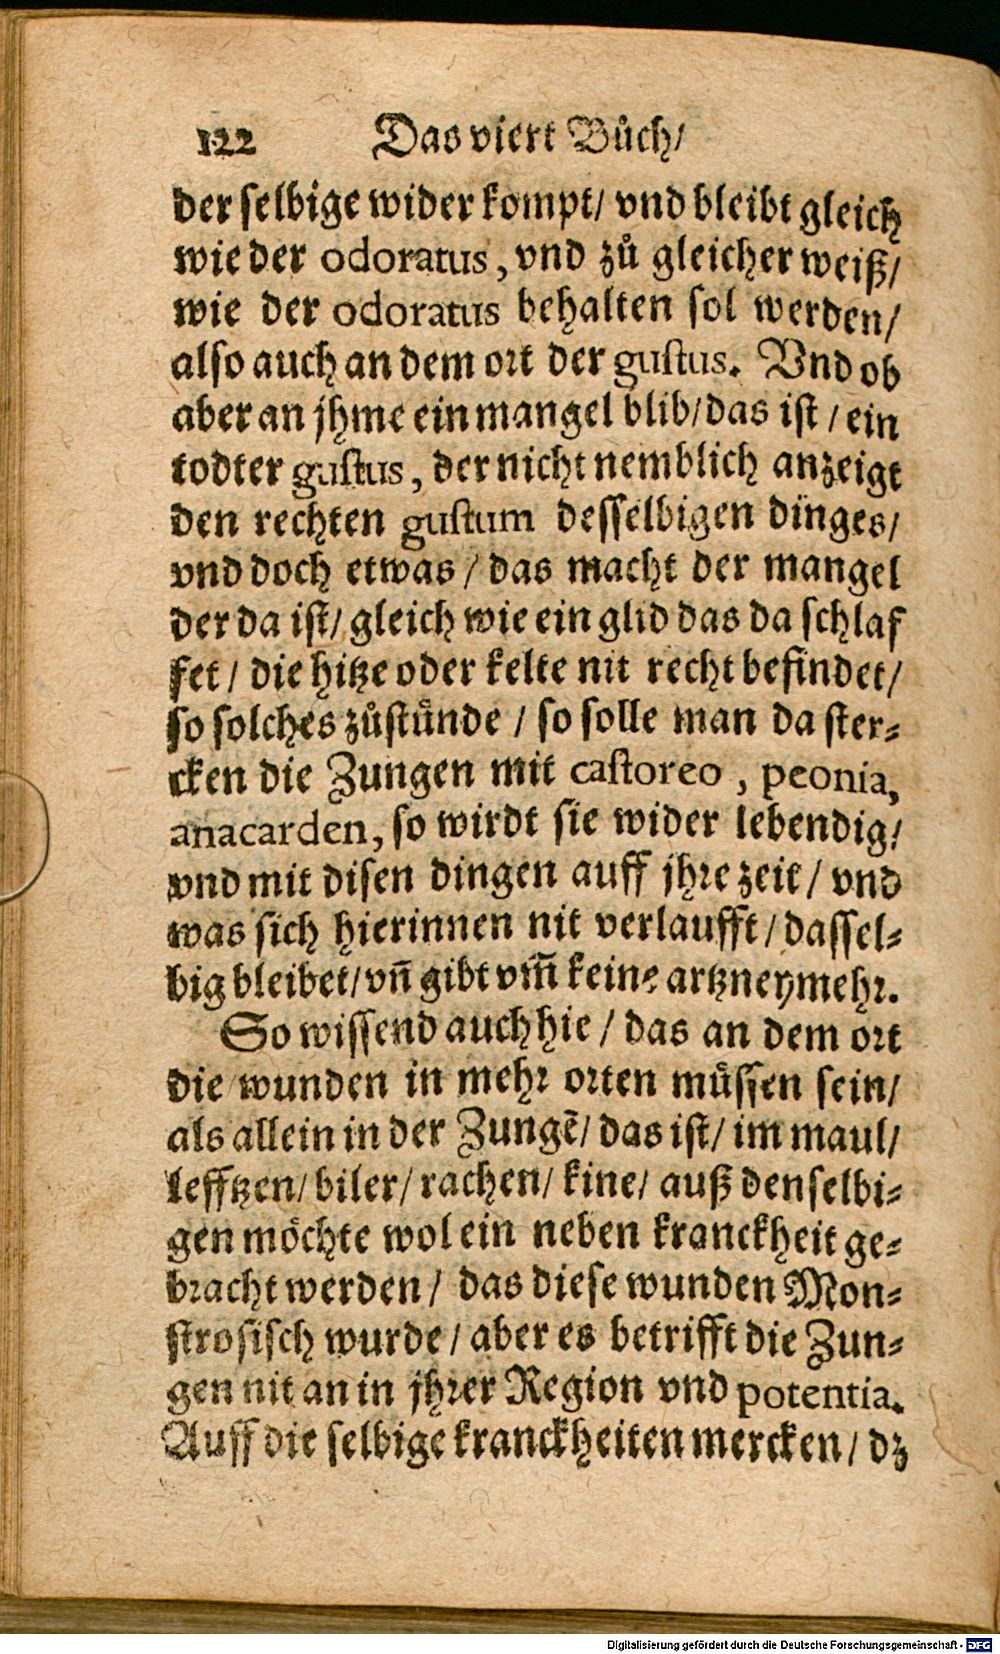 122 Das viert Bůch/
der selbige wider kompt/ vnd bleibt gleich
wie der odoratus, vnd zů gleicher weiß/
wie der odoratus behalten sol werden/
also auch an dem ort der gustus. Vnd ob
aber an jhme ein mangel blib/ das ist / ein
todter gustus, der nicht nemblich anzeigt
den rechten gustum desselbigen dinges/
vnd doch etwas / das macht der mangel
der da ist/ gleich wie ein glid das da schlaf
fet / die hitze oder kelte nit recht befindet/
so solches zůstünde / so solle man da ster-
cken die Zungen mit castoreo , peonia,
anacarden, so wirdt sie wider lebendig/
vnd mit disen dingen auff jhre zeit / vnd
was sich hierinnen nit verlaufft / dassel-
big bleibet/ vñ gibt vm̃ keine artzney mehr.
So wissend auch hie / das an dem ort
die wunden in mehr orten müssen sein/
als allein in der Zungẽ/ das ist/ im maul/
lefftzen/ biler/ rachen/ kine/ auß denselbi-
gen möchte wol ein neben kranckheit ge-
bracht werden / das diese wunden Mon-
strosisch wurde / aber es betrifft die Zun-
gen nit an in jhrer Region vnd potentia.
Auff die selbige kranckheiten mercken / dz
Digitalisierung gefördert durch die Deutsche Forschungsgemeinschaft - DFG